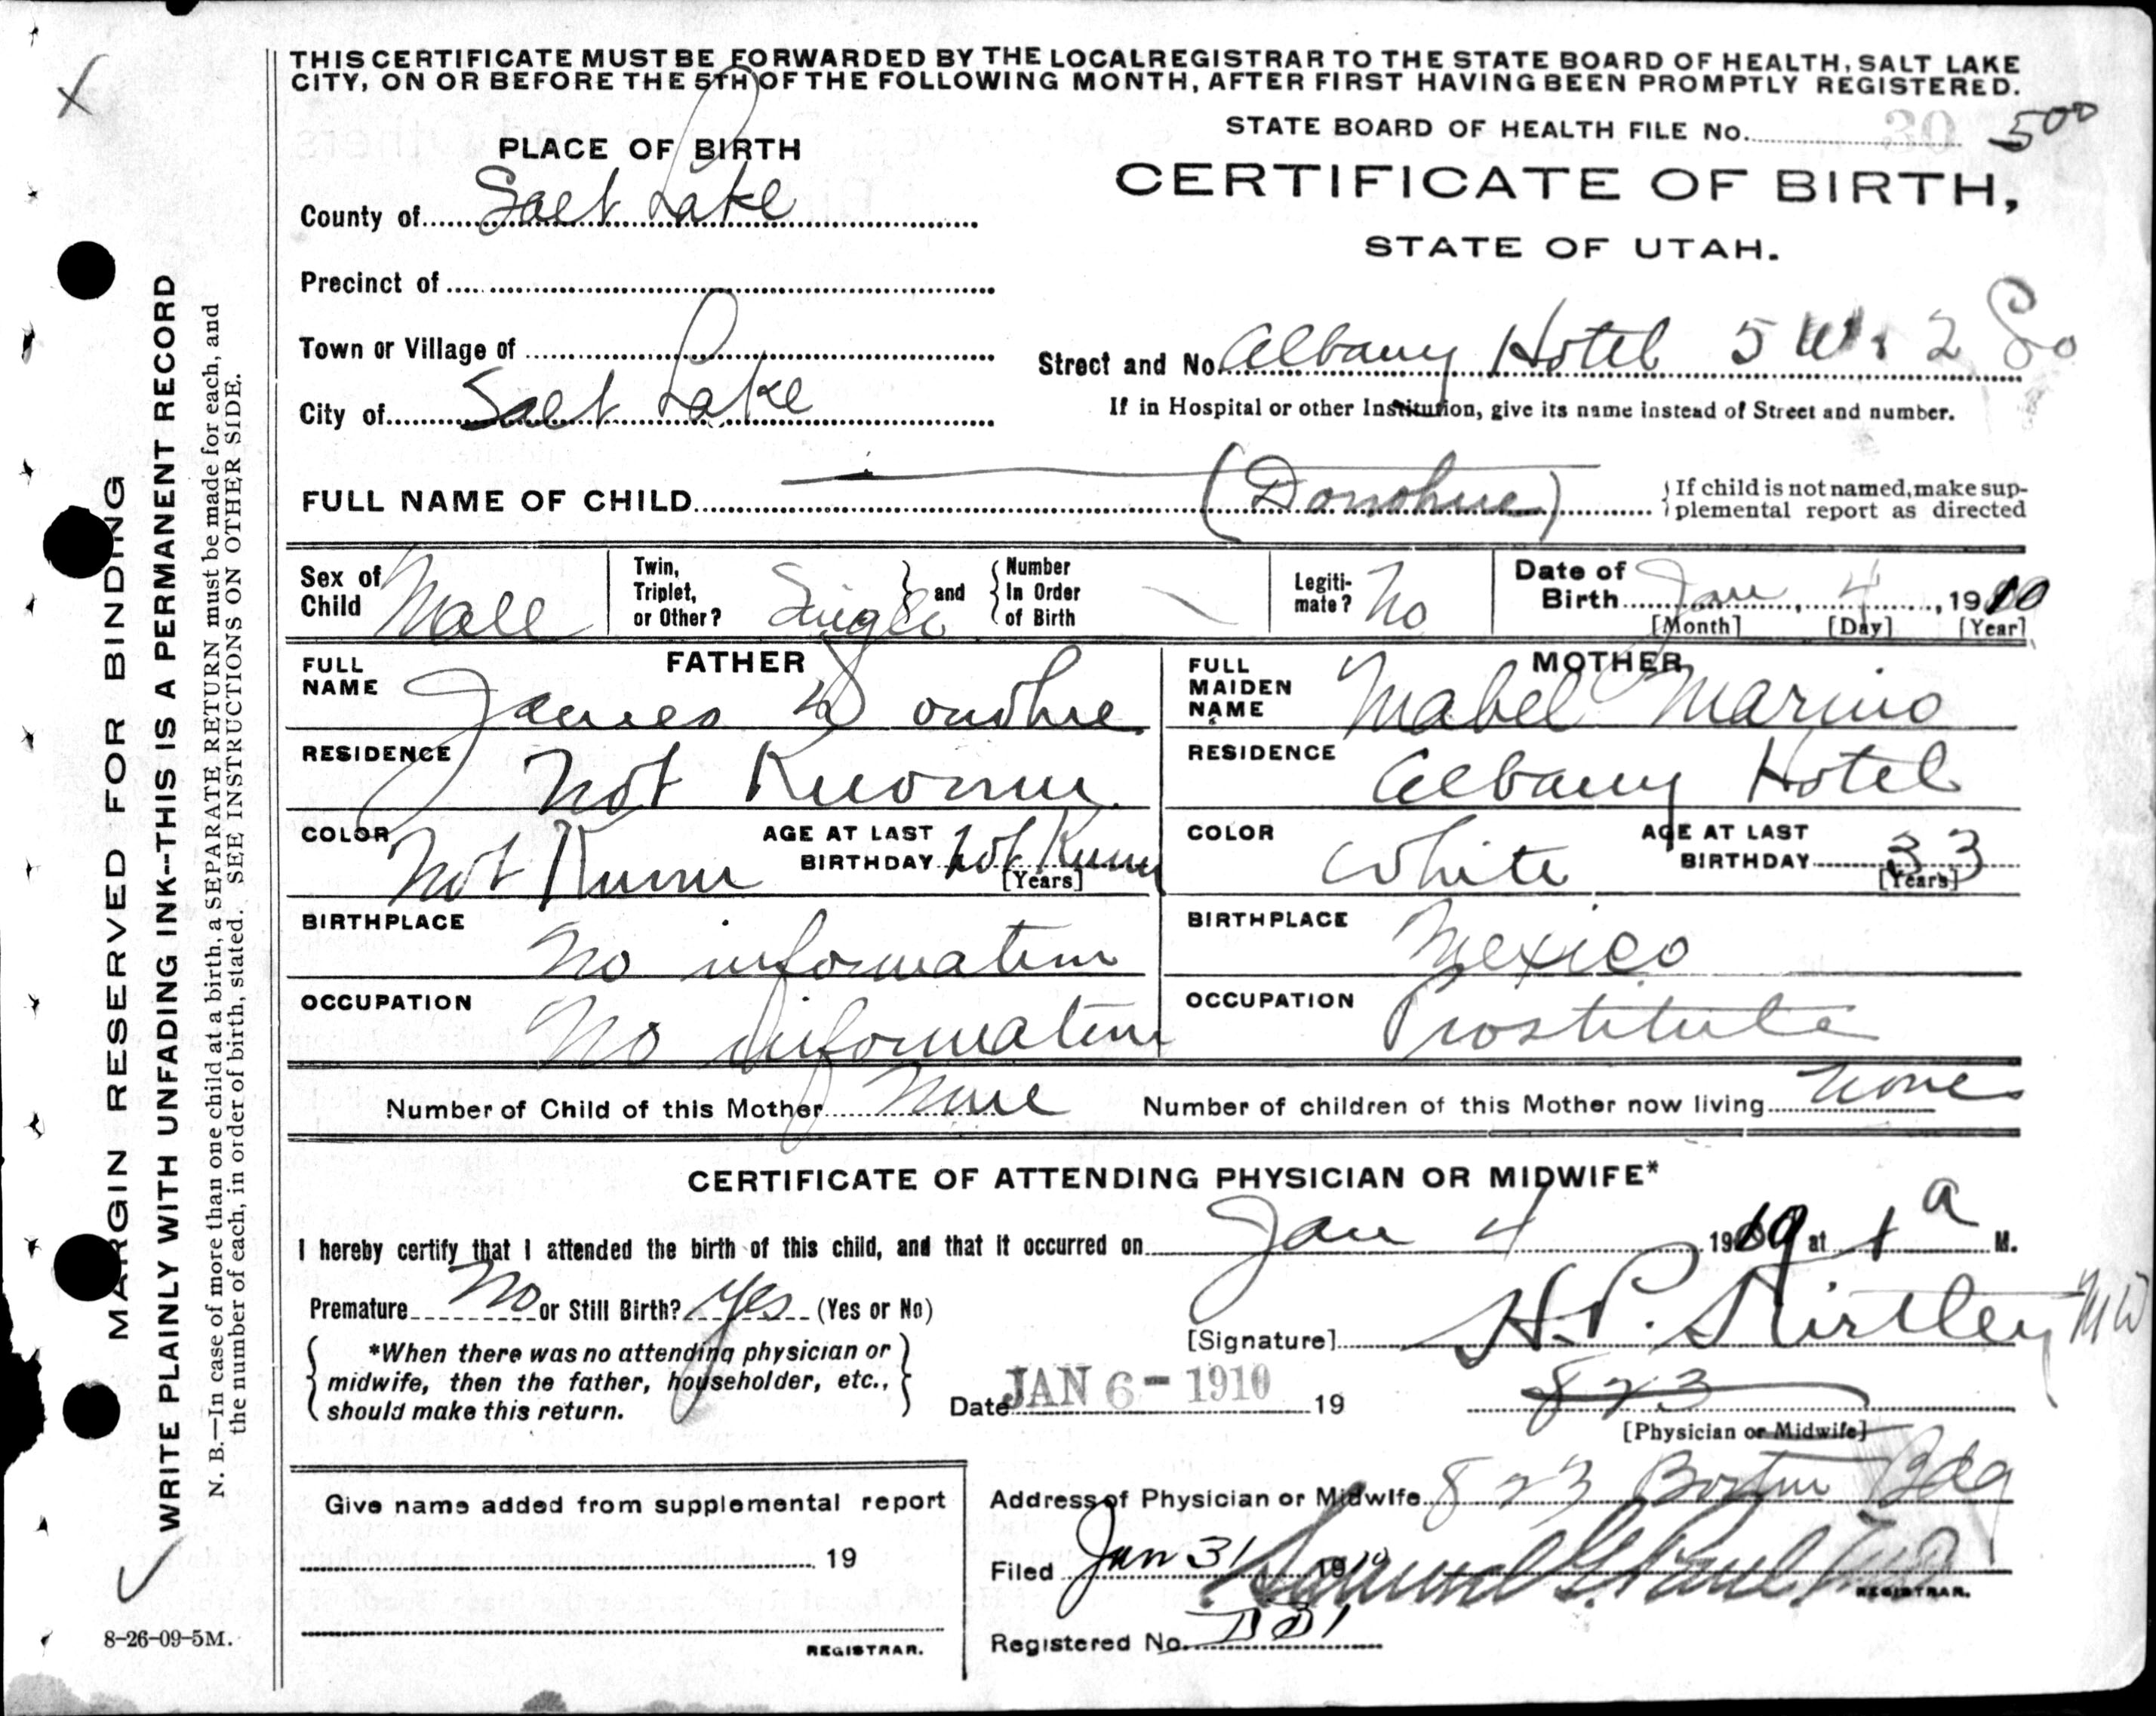 THIS CERTIFICATE MUST BE FORWARDED BY THE LOCAL REGISTRAR TO THE STATE BOARD OF HEALTH, SALT LAKE
CITY, ON OR BEFORE THE 5TH OF THE FOLLOWING MONTH, AFTER FIRST HAVING BEEN PROMPTLY REGISTERED.
STATE BOARD OF HEALTH FILE No. 30 500
PLACE OF BIRTH
CERTIFICATE OF BIRTH,
STATE OF UTAH.
County of Salt Lake
Precinct of
Town or Village of
Street and No. Albany Hotel 5 W. 2 So
City of Salt Lake
If in Hospital or other Institution, give its name instead of Street and number.
FULL NAME OF CHILD (Donohue) If child is not named, make sup-
plemental report as directed
Sex of Child Male
Twin, Triplet, or Other? Single and Number In Order of Birth
Legiti-mate? No
Date of Birth Jan 4, 1910
[Month] [Day] [Year]
FATHER
FULL NAME James Donohue
RESIDENCE Not Known
COLOR Not Known AGE AT LAST BIRTHDAY Not Known
[Years]
BIRTHPLACE No information
OCCUPATION No information
MOTHER
FULL MAIDEN NAME Mabel Marino
RESIDENCE Albany Hotel
COLOR White AGE AT LAST BIRTHDAY 33
[Years]
BIRTHPLACE Mexico
OCCUPATION Prostitute
Number of Child of this Mother None Number of children of this Mother now living None
CERTIFICATE OF ATTENDING PHYSICIAN OR MIDWIFE*
I hereby certify that I attended the birth of this child, and that it occurred on Jan 4 1910 at 1 a M.
Premature No or Still Birth? Yes (Yes or No)
[Signature] H.P. Kirtley MD
*When there was no attending physician or
midwife, then the father, householder, etc.,
should make this return.
Date JAN 6 - 1910 19
823
[Physician or Midwife]
Address of Physician or Midwife 823 Boston Bdg
Give name added from supplemental report
19
REGISTRAR.
Filed Jan 31 1910 Samuel G. Paul MD
REGISTRAR.
Registered No.
8-26-09-5M.
MARGIN RESERVED FOR BINDING
WRITE PLAINLY WITH UNFADING INK--THIS IS A PERMANENT RECORD
N. B.—In case of more than one child at a birth, a SEPARATE RETURN must be made for each, and
the number of each, in order of birth, stated. SEE INSTRUCTIONS ON OTHER SIDE.